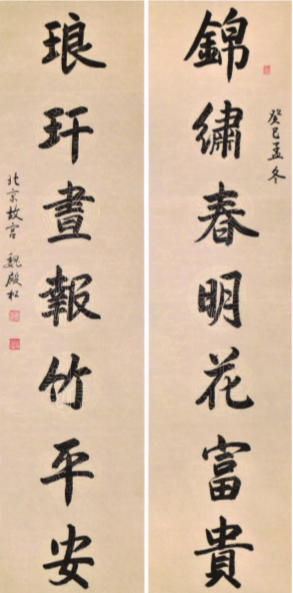 錦繡春明花富貴
癸巳孟冬
琅玕晝報竹平安
北京故宮 魏殿松